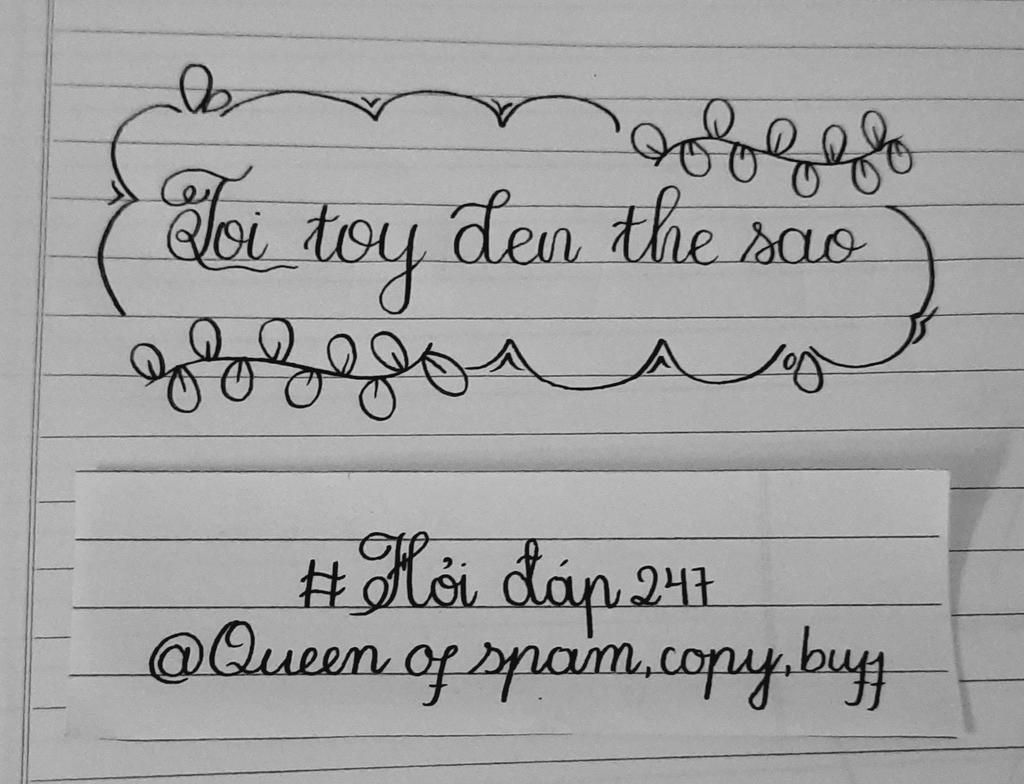 Toi toy den the sao
#Hỏi đáp 247
@Queen of spam, copy, buff